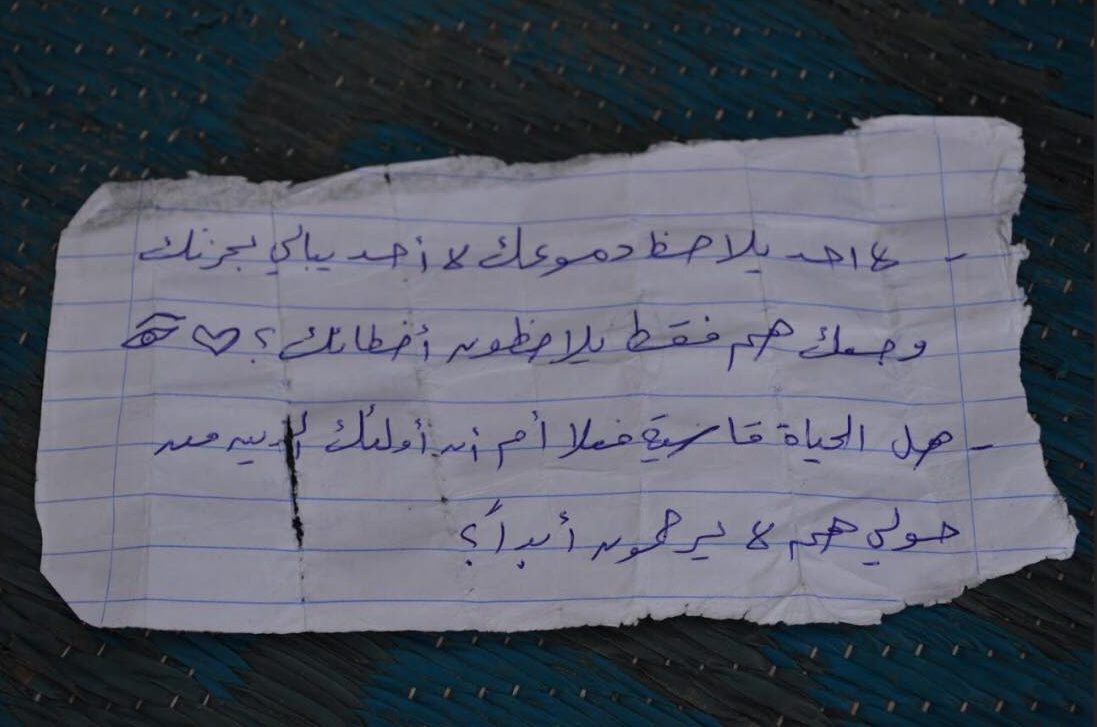 - لا احد يلاحظ دموعك لا أحد يبالي بحزنك
وجعك هم فقط يلاحظون أخطائك؟
- هل الحياة قاسية فعلا أم أن أولئك الذين من
حولي هم لا يرحمون أبداً؟